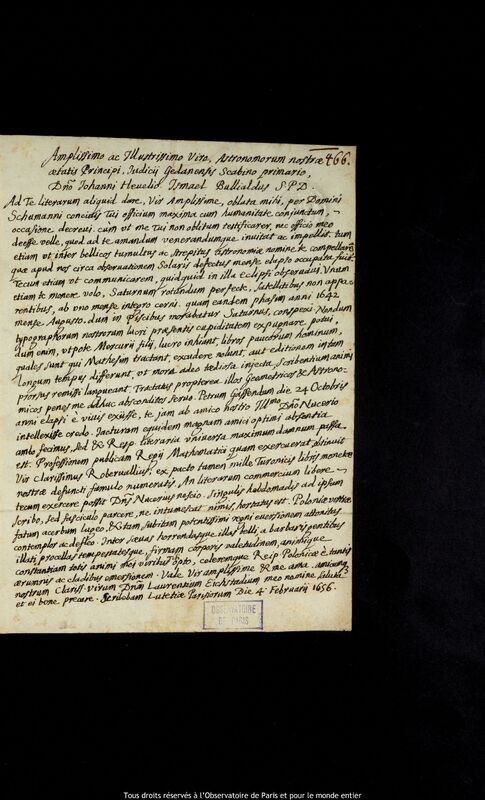 466.
Amplissimo ac Illustrissimo Viro, Astronomorum nostræ
ætatis Principi, Iudicij Gedanensis Scabino primario,
Dño Iohanni Hevelio Ismael Bullialdus S.P.D.
Ad Te literarum aliquid dare, Vir Amplissime, oblata mihi, per Domini
Schumanni concivis Tui officium maxima cum humanitate conjunctum,
occasione decrevi. cum ut me Tui non oblitum testificarer, nec officio meo
deesse velle, quod ad te amandum venerandumque invitat ac impellit. tum
etiam ut inter bellicos tumultus ac strepitus Astronomiæ nomine te compellarem
quæ apud nos circa observationem Solaris defectus mense elapso occupata fuit
Tecum etiam ut communicarem, quidquid in illa eclipsi observavi. Unum
etiam te monere volo, Saturnum rotundum perfecte, satellitibus non appa-
rentibus, ab uno mense integro cerni. quam eandem phasim anni 1642
mense Augusto, dum in Piscibus morabatur Saturnus, conspexi Nondum
typographorum nostrorum lucri præsentis cupiditatem expugnare potui
dum enim, utpote Mercurij filij, lucro inhiant, libros paucorum hominum,
quales sunt qui Mathesim tractant, excudere nolunt, aut editionem in tam
longum tempus differunt, ut mora adeo tediosa injecta scribentium animi
prorsus remissi langueant. Tractatus propterea illos Geometricos & Astrono-
micos penes me adhuc absconditos servo. Petrum Gassendum die 24 Octobris
anni elapsi è vivis exijsse, te jam ab amico nostro Illmo Dño Nucerio
intellexisse credo. Iacturam equidem magnam amici optimi absentia
ambo fecimus, sed & Resp. literaria universa maximum damnum passa
est. Professionem publicam Regij Mathematici quam exercuerat obtinuit
Vir Clarissimus Robervallius, ex pacto tamen mille Turonicis libris monetæ
nostræ defuncti famulo numeratis. An literarum commercium libere
tecum exercere possit Dñs Nucerius nescio. singulis hebdomadis ad ipsum
scribo, sed fasciculo parcere, ne intumescat nimis, hortatus est. Poloniæ vestræ
fatum acerbum lugeo, & tam subitam potentissimi regni eversionem attonitus
contemplor ac defleo. Inter sævas horrendasque illas belli a barbaris gentibus
illati procellas tempestatesque, firmam corporis valetudinem, animique
constantiam totis animi mei viribus opto, celeremque Reip Polonicæ è tantis
ærumnis ac cladibus emersionem. Vale Vir amplissime & me ama. amicumq3
nostrum Clariss. virum Dñm Laurentium Eichstadium meo nomine saluta
et ei bene precare. Scribebam Lutetiæ Parisiorum Die 4 Februarij 1656.
OBSERVATOIRE
DE PARIS
Tous droits réservés à l'Observatoire de Paris et pour le monde entier